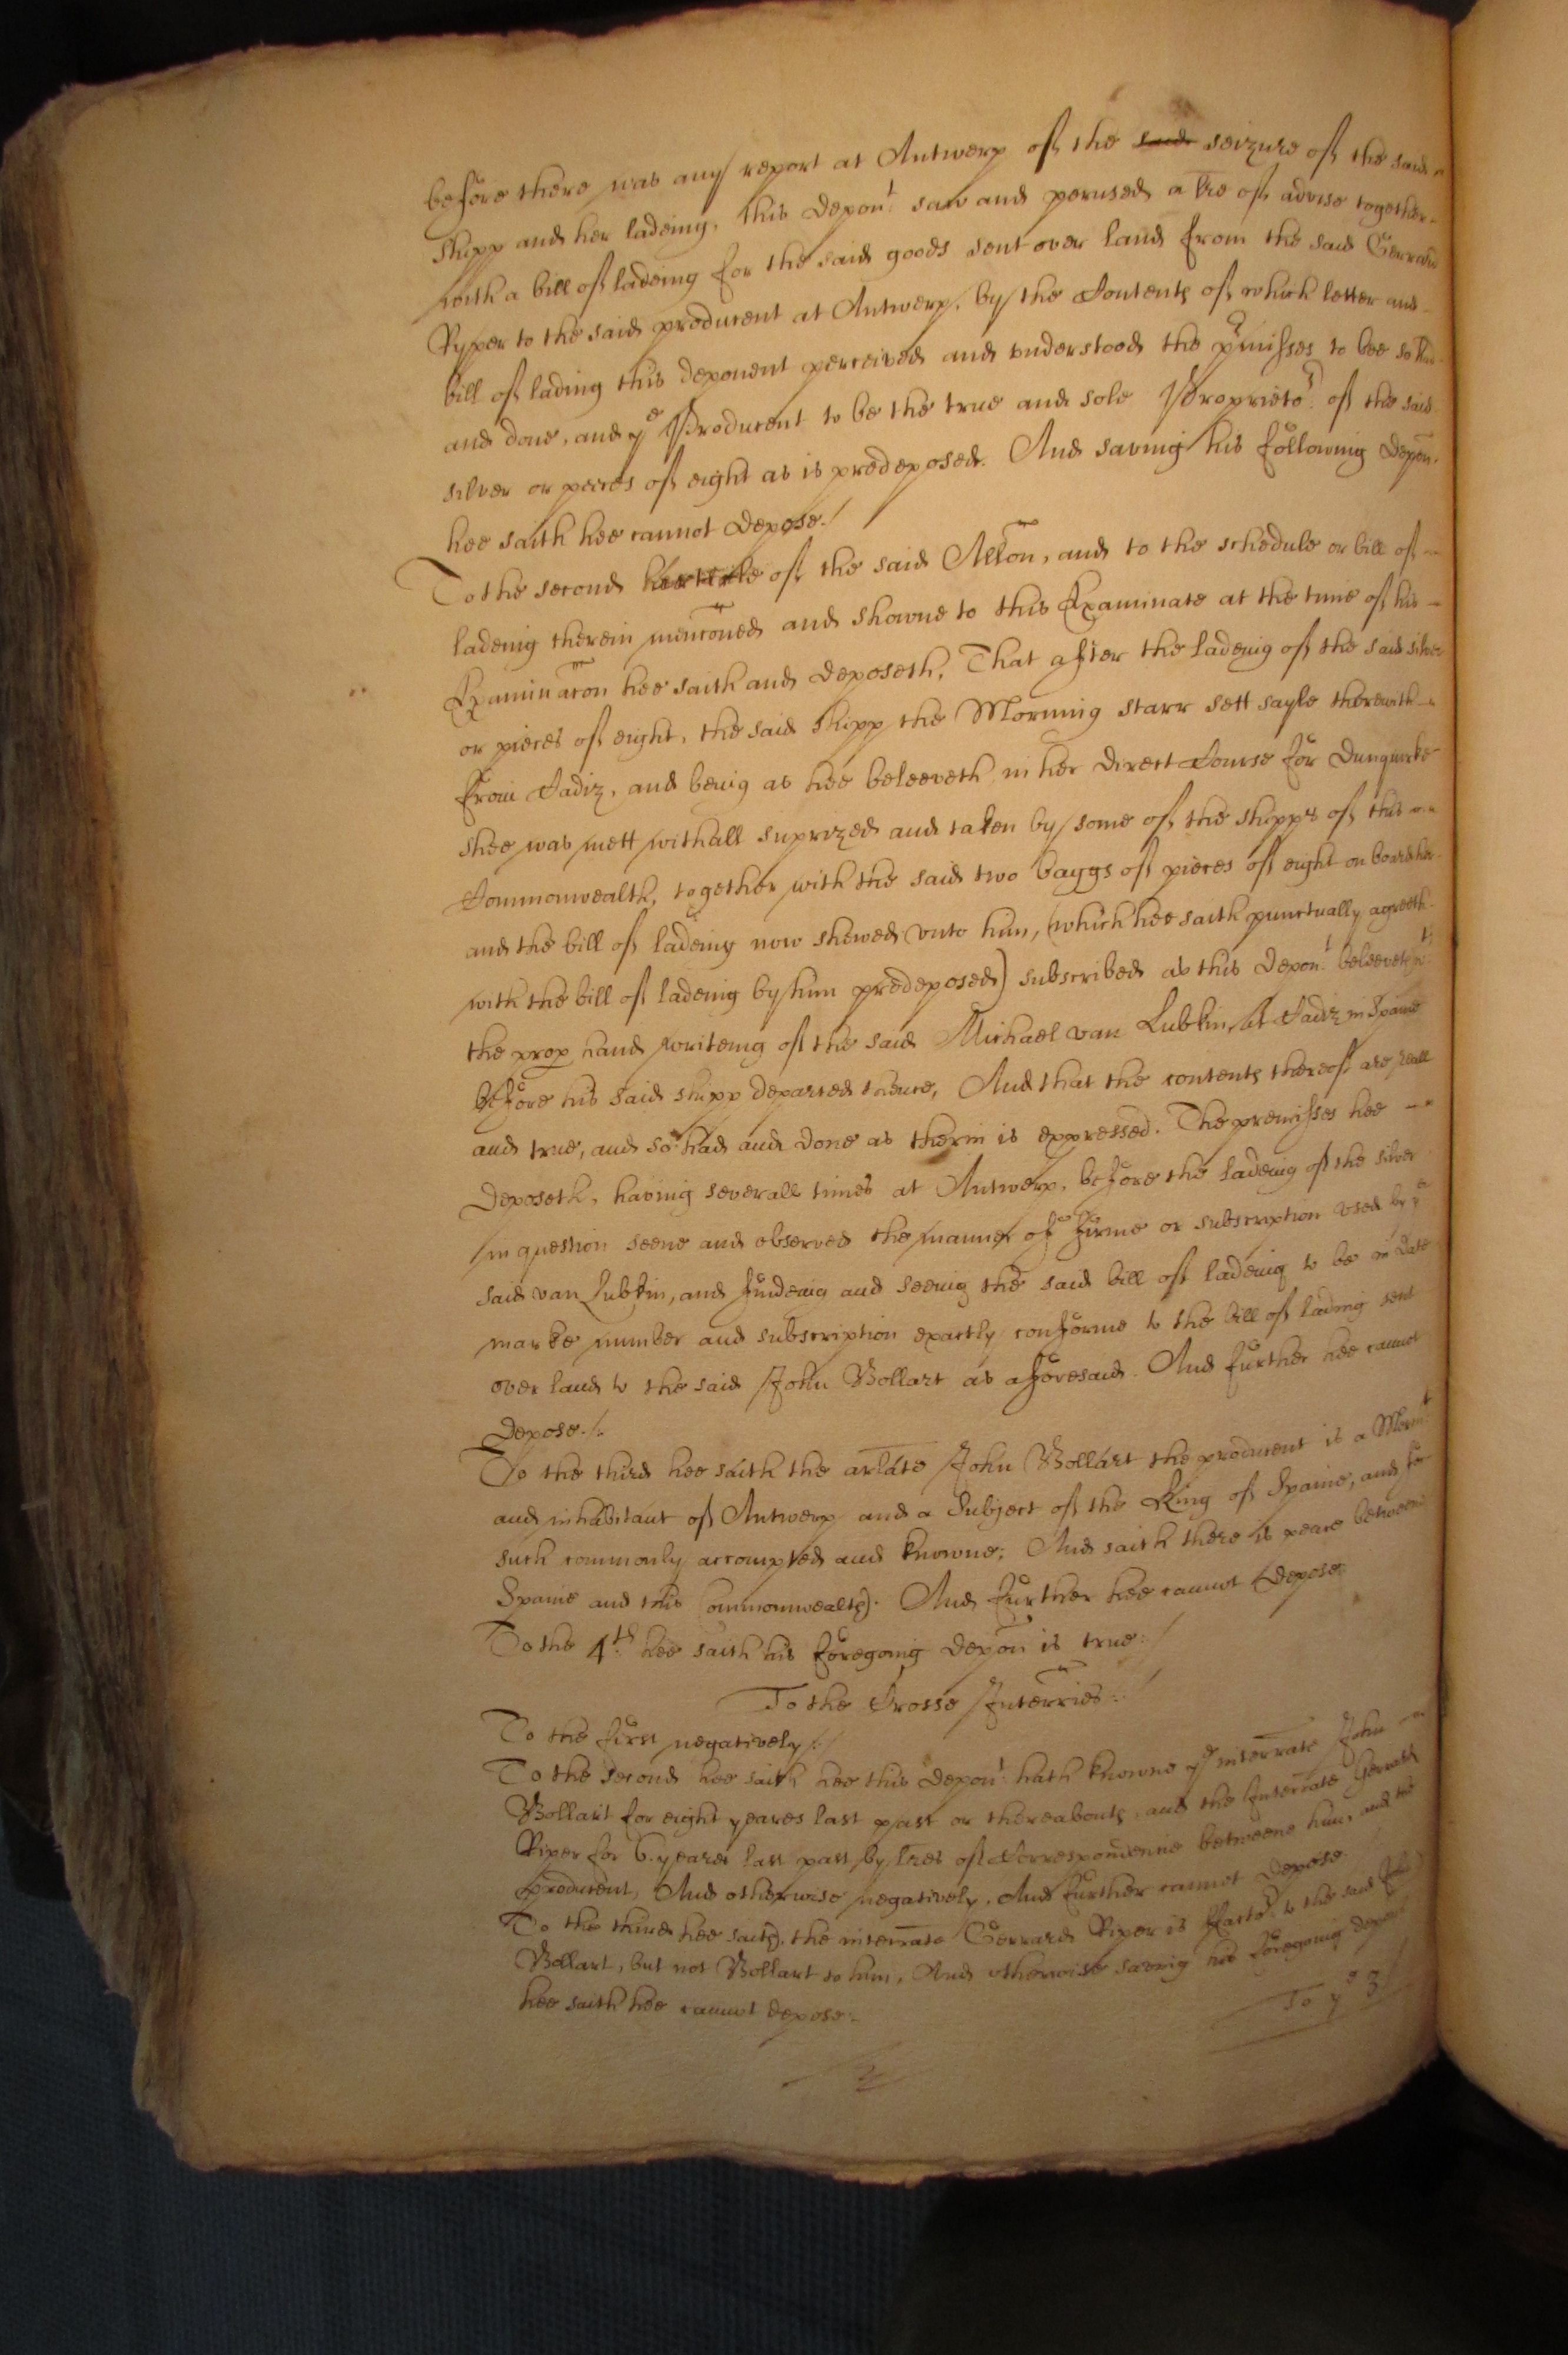 before there was any report at Antwerp of the said seizure of the said
shipp and her ladeing, this depont saw and perused a tre of advise together
with a bill of ladeing for the said goods sent over land from the said Gerrard
Ryper to the said producent at Antwerp, by the Contents of which letter and
bill of lading this deponent perceived and understood the pmisses to bee so had
and done, and ye Producent to be the true and sole Proprietor of the said
silver or peeces of eight as is predeposed. And saving his following depon.
hee saith hee cannot depose./
To the second of the said Allon, and to the schedule or bill of
ladeing therein menconed and showne to this Examinate at the time of his
Examinacon hee saith and deposeth, That after the ladeing of the said silver
or pieces of eight, the said shipp the Morning starr sett sayle therewith
from Cadiz, and being as hee beleeveth in her direct Course for Dunquirke
shee was mett withall suprized and taken by some of the shipps of this
Commonwealth, together with the said two baggs of pieces of eight on board her
and the bill of ladeing now shewed unto him, (which hee saith punctually agreeth
with the bill of ladeing by him predeposed) subscribed as this depont beleeveth wth
the prop hand writeing of the said Michael van Lubkin, at Cadiz in Spaine
before his said shipp departed thence, And that the contents thereof are reall
and true, and so had and done as therin is expressed. The premisses hee
deposeth, having severall times at Antwerp, before the ladeing of the silver
in question seene and observed the manner of firme or subscription used by ye
said van Lubkin, and findeing and seeing the said bill of ladeing to be in date
marke number and subscription exactly conforme to the bill of lading sent
over land to the said John Bollart as aforesaid. And further hee cannot
depose./.
To the third hee saith the arlate John Bollart the producent is a Mercht
and inhabitant of Antwerp and a Subject of the King of Spaine, and for
such commonly accompted and knowne; And saith there is peace betweene
Spaine and this Commonwealth. And further hee cannot depose
To the 4th hee saith his foregoing depon is true:/
To the Crosse Interries:
To the first negatively/:/
To the second hee saith hee this depont hath knowne ye interrate John
Bollart for eight yeares last past or thereabouts, and the Interrate Gerrard
Riper for 6. yeares last past by tres of Correspondencie betweene him, and the
producent, And otherwise negatively, And further cannot depose.
To the third hee saith, the interrate Gerrard Riper is ffactor to the said John
Bollart, but not Bollart to him, And otherwise saving his foregoing depon
hee saith hee cannot depose.
To ye 3